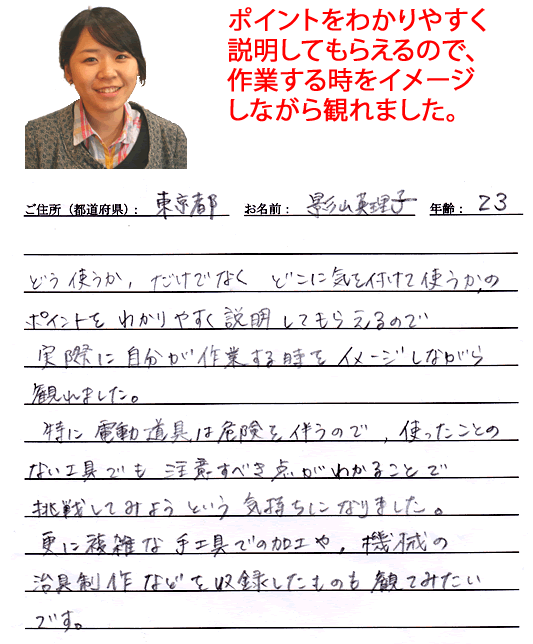 ポイントをわかりやすく
説明してもらえるので、
作業する時をイメージ
しながら観れました。
ご住所（都道府県）： 東京都 お名前： 影山英理子 年齢： 23
どう使うか、だけでなく どこに気を付けて使うか、の
ポイントを わかりやすく説明してもらえるので
実際に自分が作業する時をイメージしながら
観れました。
特に電動道具は危険を伴うので、使ったことの
ない工具でも 注意すべき点がわかることで
挑戦してみようという気持ちになりました。
更に複雑な手工具での加工や、機械の
治具制作などを収録したものも観てみたい
です。